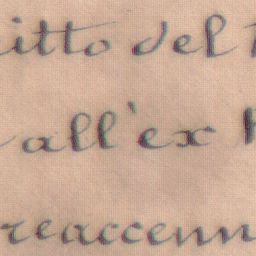 itto del
all'ex
reaccenn